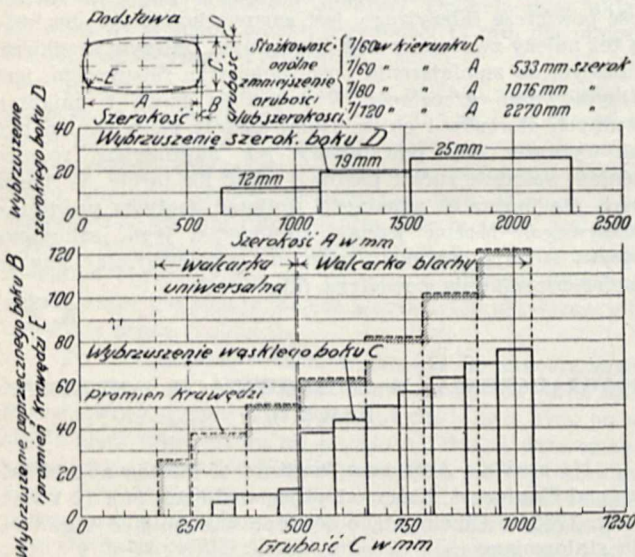 Podstawa
D
C
E
A
B
Szerokość
grubość
Stożkowość
ogólne
zmniejszenie
grubości
lub szerokości
1/60 w kierunku C
1/60 " " A 533 mm szerok
1/80 " " A 1016 mm "
1/120 " A 2270 mm "
Wybrzuszenie
szerokiego boku D
40
20
0
Wybrzuszenie szerok. boku D
12 mm
19 mm
25 mm
0 500 1000 1500 2000 2500
Szerokość A w mm
Wybrzuszenie poprzecznego boku B
i promień krawędzi E
120
100
80
60
40
20
0
walcarka
uniwersalna
Walcarka blachy
Wybrzuszenie wąskiego boku C
promień krawędzi
0 250 500 750 1000 1250
Grubość C w mm